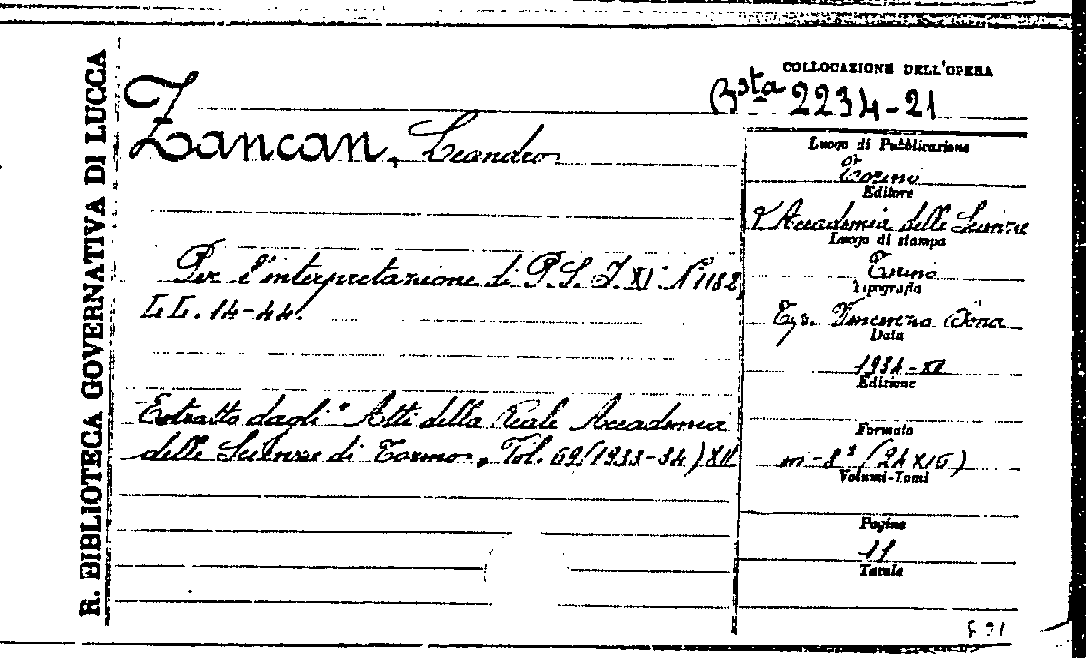 R. BIBLIOTECA GOVERNATIVA DI LUCCA
COLLOCAZIONE DELL'OPERA
Bsta 2234-21
Zancan, Leandro
Per l'interpretazione di P.S.I. XI. N° 1182,
LL. 14-44.
Estratto dagli "Atti della Reale Accademia
delle Scienze di Torino, Vol. 69 (1933-34) XII
Luogo di Pubblicazione
Torino
Editore
R Accademia delle Scienze
Luogo di stampa
Torino
Tipografia
Tip. Vincenzo Bona
Data
1934-XII
Edizione
Formato
in-8° (24x16)
Volumi-Tomi
Pagine
11
Tavole